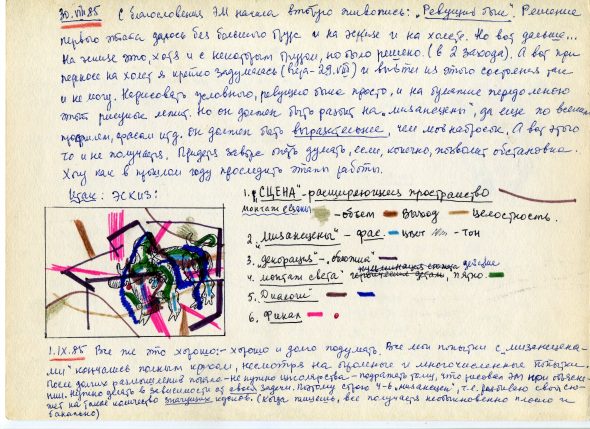 30.VIII.85 С благословения ЭМ начала вторую живопись: „Ревущий бык". Решение
первого этапа далось без большого труда и на эскизе и на холсте. Но вот дальше...
На эскизе это, хотя и с некоторым трудом, но было решено. (в 2 захода). А вот при
переносе на холст я крепко задумалась (вчера - 29.VIII) и выйти из этого состояния так
и не могу. Нарисовать условного, ревущего быка просто, и на бумаге передо мною
этот рисунок лежит. Но он должен быть разбит на „мизансцены", да еще по всем
профилям, фасам и т.д. он должен быть выразительнее, чем мой набросок. А вот этого
то и не получается. Придется завтра опять думать, если, конечно, позволит обстановка.
Хочу как в прошлом году проследить этапы работы.
Итак: ЭСКИЗ:
1. „СЦЕНА" - расширяющееся пространство
монтаж сцены - объем - Выход - Целостность.
2. „Мизансцены" - фас - цвет - тон
3. „декорация" -
4. „монтаж света" деталь, пятно.
5. Диалоги
6. Финал
1.IX.85 Все же это хорошо: - хорошо и долго подумать. Все мои попытки с „мизансцена-
ми" кончались полным крахом, несмотря на и многочисленные попытки.
После долгих размышлений поняла - не нужно - подражать тому, что рисовал ЭМ при объясне-
нии. Нужно делать в зависимости от своей задачи. Поэтому строю 4-6 „мизансцен", т.е. разбиваю свой сю-
жет на такое количество значущих кусков. (когда пишешь, все получается необыкновенно плоско и
банально)